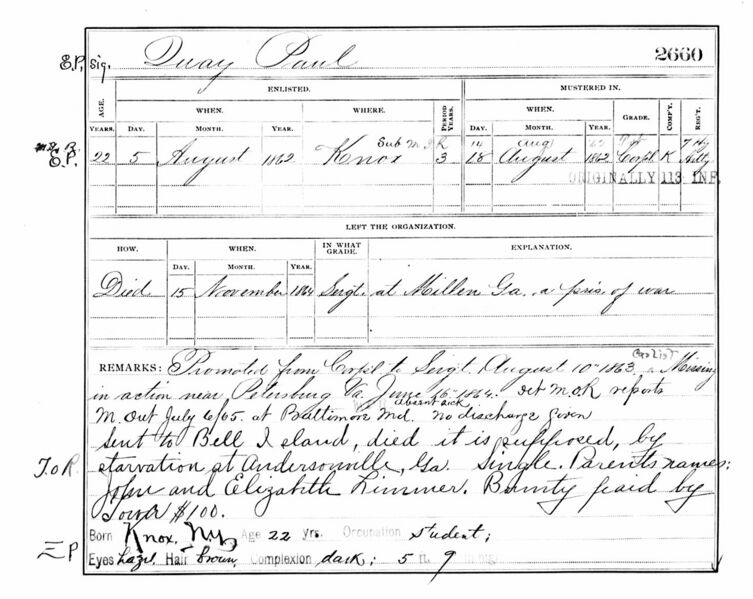 E.P. Sig. Quay Paul 2660
ENLISTED. MUSTERED IN.
AGE. WHEN. WHERE. PERIOD YEARS. WHEN. GRADE. COMP'Y. REG'T.
YEARS. DAY. MONTH. YEAR. DAY. MONTH. YEAR.
Sub M. I. R 14 Aug 62 Pvt 7 Hy
E.P. 22 5 August 1862 Knox 3 18 August 1862 Corpl K Artly
ORIGINALLY 113 INF.
LEFT THE ORGANIZATION.
HOW. WHEN. IN WHAT GRADE. EXPLANATION.
DAY. MONTH. YEAR.
Died 15 November 1864 Sergt. at Millen Ga. a pris of war
REMARKS: Promoted from Corpl to Sergt. August 10" 1863. Missing
in action near Petersburg Va. June 16" 1864. Det M.O.R reports
absent sick
M. Out July 6/65. at Baltimore Md. No discharge given
Sent to Bell Island, died it is supposed, by
T.o R. starvation at Andersonville, Ga. Single. Parents names;
John and Elizabeth Zimmer. Bounty paid by
Town $100.
Born Knox, N.Y. Age 22 yrs. Occupation student;
E P Eyes hazel, Hair brown, Complexion dark; 5 ft. 9 in high